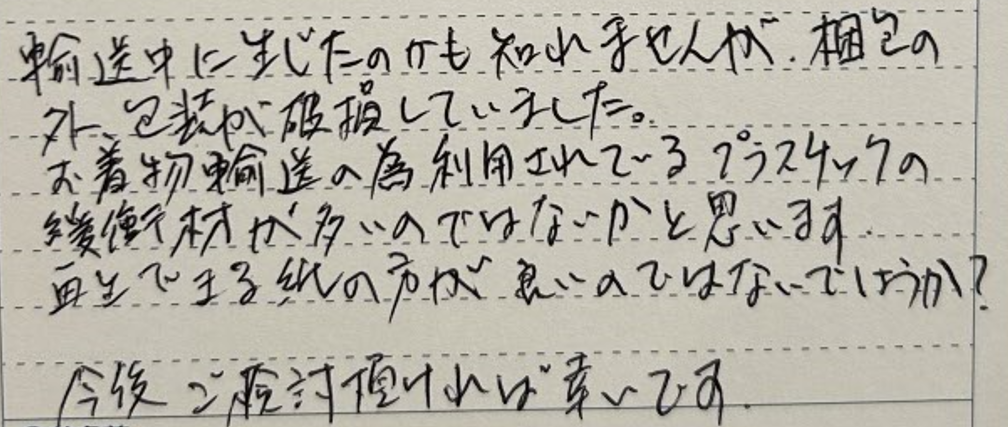 輸送中に生じたのかも知れませんが、梱包の
外、包装が破損していました。
お着物輸送の為利用されているプラスチックの
緩衝材が多いのではないかと思います。
再生できる紙の方が良いのではないでしょうか?
今後ご検討頂ければ幸いです。